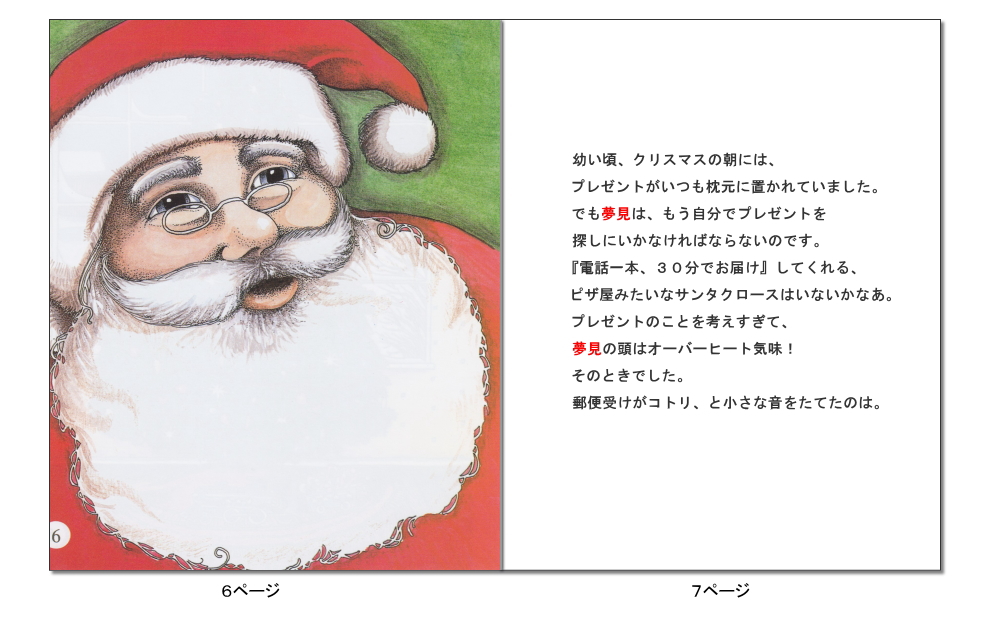 幼い頃、クリスマスの朝には、
プレゼントがいつも枕元に置かれていました。
でも夢見は、もう自分でプレゼントを
探しにいかなければならないのです。
『電話一本、３０分でお届け』してくれる、
ピザ屋みたいなサンタクロースはいないかなあ。
プレゼントのことを考えすぎて、
夢見の頭はオーバーヒート気味！
そのときでした。
郵便受けがコトリ、と小さな音をたてたのは。
6
6ページ
7ページ